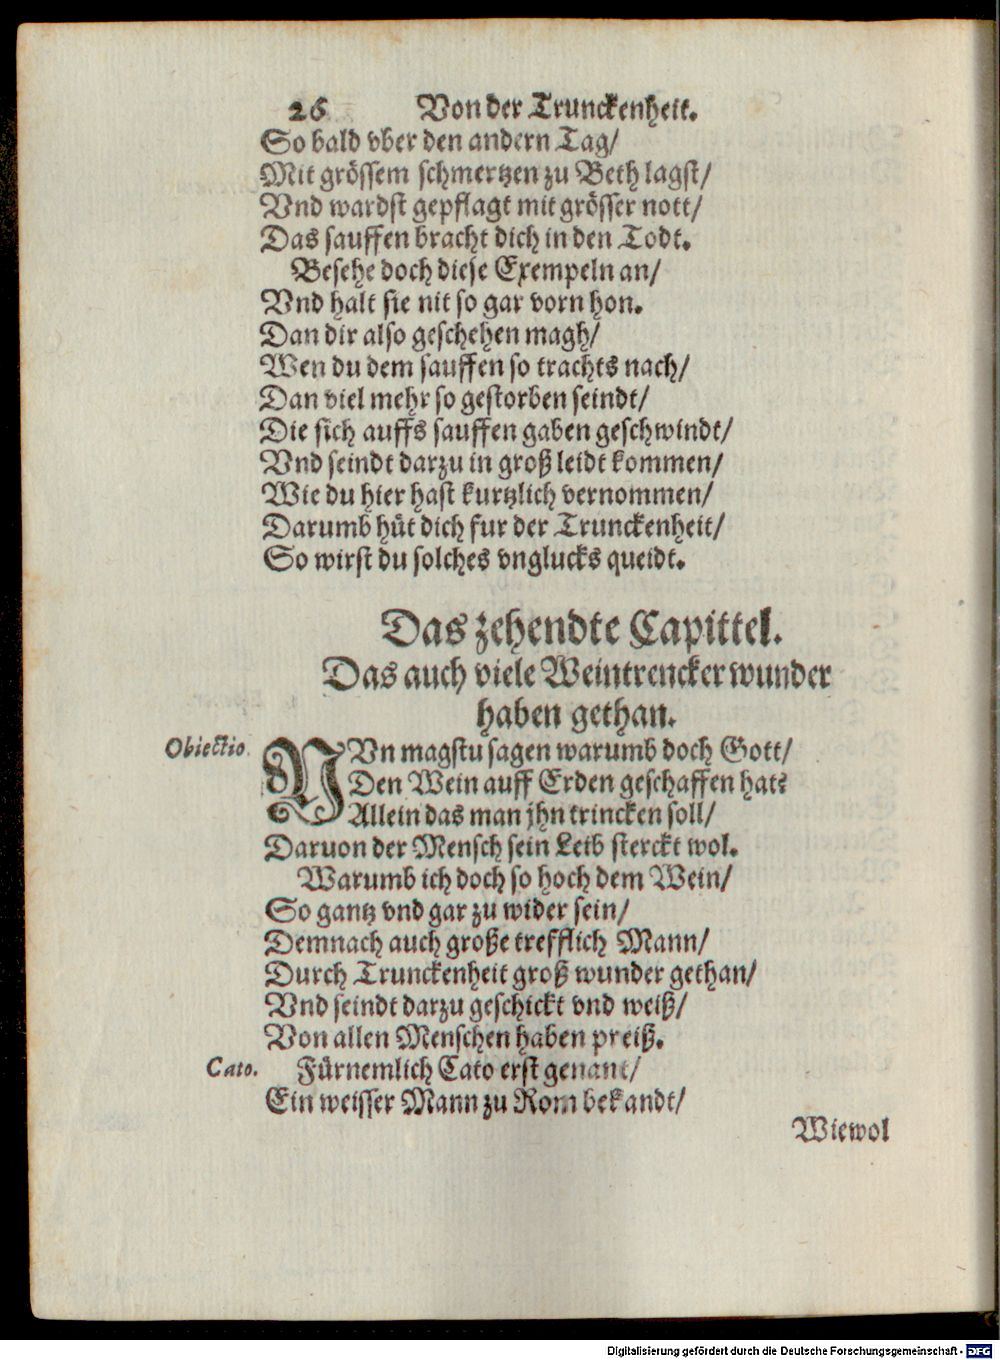 26 Von der Trunckenheit.
So bald vber den andern Tag/
Mit grössem schmertzen zu Beth lagst/
Vnd wardst gepflagt mit grösser nott/
Das sauffen bracht dich in den Todt.
Besehe doch diese Exempeln an/
Vnd halt sie nit so gar vorn hon.
Dan dir also geschehen magh/
Wen du dem sauffen so trachts nach/
Dan viel mehr so gestorben seindt/
Die sich auffs sauffen gaben geschwindt/
Vnd seindt darzu in groß leidt kommen/
Wie du hier hast kurtzlich vernommen/
Darumb hüt dich fur der Trunckenheit/
So wirst du solches vnglucks queidt.
Das zehendte Capittel.
Das auch viele Weintrencker wunder
haben gethan.
Obiectio. NVn magstu sagen warumb doch Gott/
Den Wein auff Erden geschaffen hat?
Allein das man jhn trincken soll/
Daruon der Mensch sein Leib sterckt wol.
Warumb ich doch so hoch dem Wein/
So gantz vnd gar zu wider sein/
Demnach auch große trefflich Mann/
Durch Trunckenheit groß wunder gethan/
Vnd seindt darzu geschickt vnd weiß/
Von allen Menschen haben preiß.
Cato. Fürnemlich Cato erst genant/
Ein weisser Mann zu Rom bekandt/
Wiewol
Digitalisierung gefördert durch die Deutsche Forschungsgemeinschaft - DFG